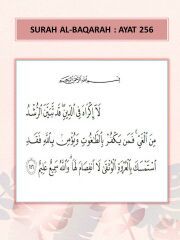 SURAH AL-BAQARAH : AYAT 256
بِسْمِ اللَّهِ الرَّحْمَٰنِ الرَّحِيمِ
لَا إِكْرَاهَ فِي الدِّينِ ۖ قَد تَّبَيَّنَ الرُّشْدُ
مِنَ الْغَيِّ ۚ فَمَن يَكْفُرْ بِالطَّاغُوتِ وَيُؤْمِن بِاللَّهِ فَقَدِ
اسْتَمْسَكَ بِالْعُرْوَةِ الْوُثْقَىٰ لَا انفِصَامَ لَهَا ۗ وَاللَّهُ سَمِيعٌ عَلِيمٌ ﴿٢٥٦﴾